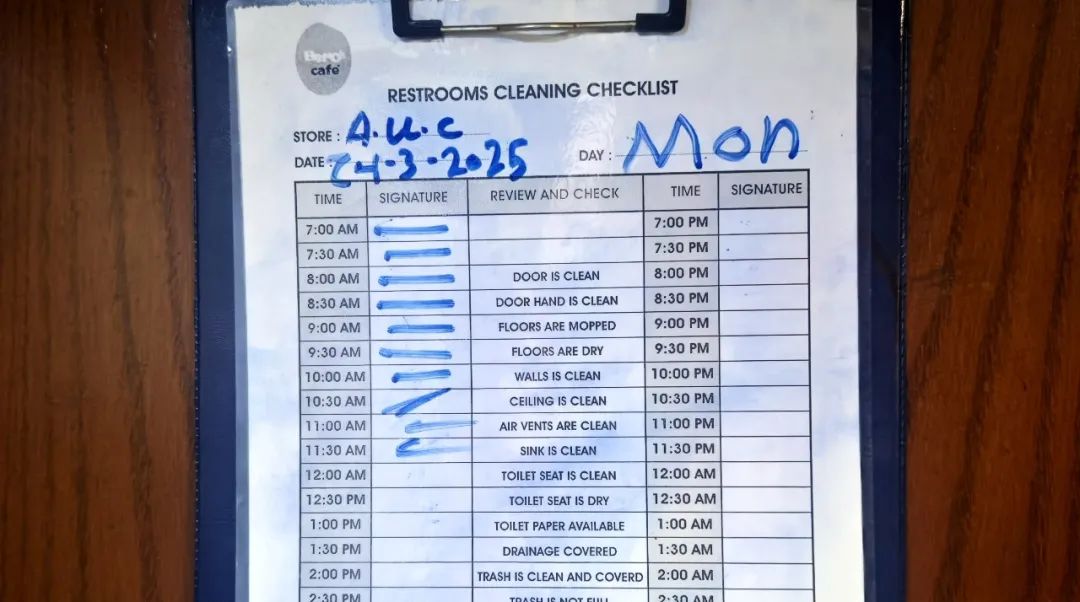 Bero's
café
RESTROOMS CLEANING CHECKLIST
STORE : A.U.C
DATE : 24-3-2025 DAY : Mon
TIME SIGNATURE REVIEW AND CHECK TIME SIGNATURE
7:00 AM 7:00 PM
7:30 AM 7:30 PM
8:00 AM DOOR IS CLEAN 8:00 PM
8:30 AM DOOR HAND IS CLEAN 8:30 PM
9:00 AM FLOORS ARE MOPPED 9:00 PM
9:30 AM FLOORS ARE DRY 9:30 PM
10:00 AM WALLS IS CLEAN 10:00 PM
10:30 AM CEILING IS CLEAN 10:30 PM
11:00 AM AIR VENTS ARE CLEAN 11:00 PM
11:30 AM SINK IS CLEAN 11:30 PM
12:00 AM TOILET SEAT IS CLEAN 12:00 AM
12:30 PM TOILET SEAT IS DRY 12:30 AM
1:00 PM TOILET PAPER AVAILABLE 1:00 AM
1:30 PM DRAINAGE COVERED 1:30 AM
2:00 PM TRASH IS CLEAN AND COVERD 2:00 AM
2:30 PM TRASH IS NOT FULL 2:30 AM